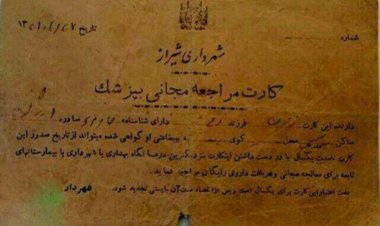 شماره
تاریخ
شهرداری شیراز
کارت مراجعه مجانی بپزشك
دارنده این کارت فرزند دارای شناسنامه صادره
ساکن محل کوی به بیبضاعتی او گواهی شده میتواند از تاریخ صدور این
کارت تا مدت یکسال با در دست داشتن اینکارت بنزدیکترین درمانگاه بهداری یا شهرداری یا بیمارستانهای
تابعه برای معالجه مجانی و دریافت داروی رایگان مراجعه نماید.
مدت اعتبار این کارت برای یکسال است و پس از انقضاء مدت آن بایستی تجدید شود. شهردار